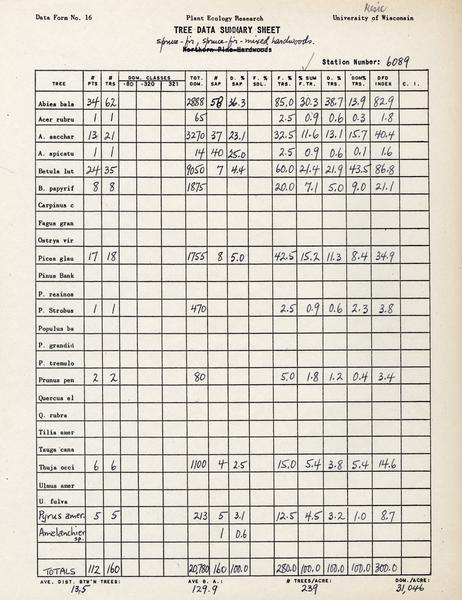 Data Form No. 16 Plant Ecology Research University of Wisconsin
TREE DATA SUMMARY SHEET
spruce-fir, spruce-fir-mixed hardwoods.
Northern Pine-Hardwoods
Station Number: 6089
TREE # PTS # TRS DOM. CLASSES -80 -320 321 TOT. DOM # SAP D. % SAP F. % SDL. F. % TRS. % SUM F.TR. D. % TRS. DOM% TRS. DFD INDEX C. I.
Abies bals 34 62 2888 58 36.3 85.0 30.3 38.7 13.9 82.9
Acer rubru 1 1 65 2.5 0.9 0.6 0.3 1.8
A. sacchar 13 21 3270 37 23.1 32.5 11.6 13.1 15.7 40.4
A. spicatu 1 1 14 40 25.0 2.5 0.9 0.6 0.1 1.6
Betula lut 24 35 9050 7 4.4 60.0 21.4 21.9 43.5 86.8
B. papyrif 8 8 1875 20.0 7.1 5.0 9.0 21.1
Carpinus c
Fagus gran
Ostrya vir
Picea glau 17 18 1755 8 5.0 42.5 15.2 11.3 8.4 34.9
Pinus Bank
P. resinos
P. Strobus 1 1 470 2.5 0.9 0.6 2.3 3.8
Populus ba
P. grandid
P. tremulo
Prunus pen 2 2 80 5.0 1.8 1.2 0.4 3.4
Quercus el
Q. rubra
Tilia amer
Tsuga cana
Thuja occi 6 6 1100 4 2.5 15.0 5.4 3.8 5.4 14.6
Ulmus amer
U. fulva
Pyrus amer. 5 5 213 5 3.1 12.5 4.5 3.2 1.0 8.7
Amelanchier sp. 1 0.6
TOTALS 112 160 20,780 160 100.0 280.0 100.0 100.0 100.0 300.0
AVE. DIST. BTW'N TREES: AVE B. A.: # TREES/ACRE: DOM./ACRE:
13.5 129.9 239 31,046